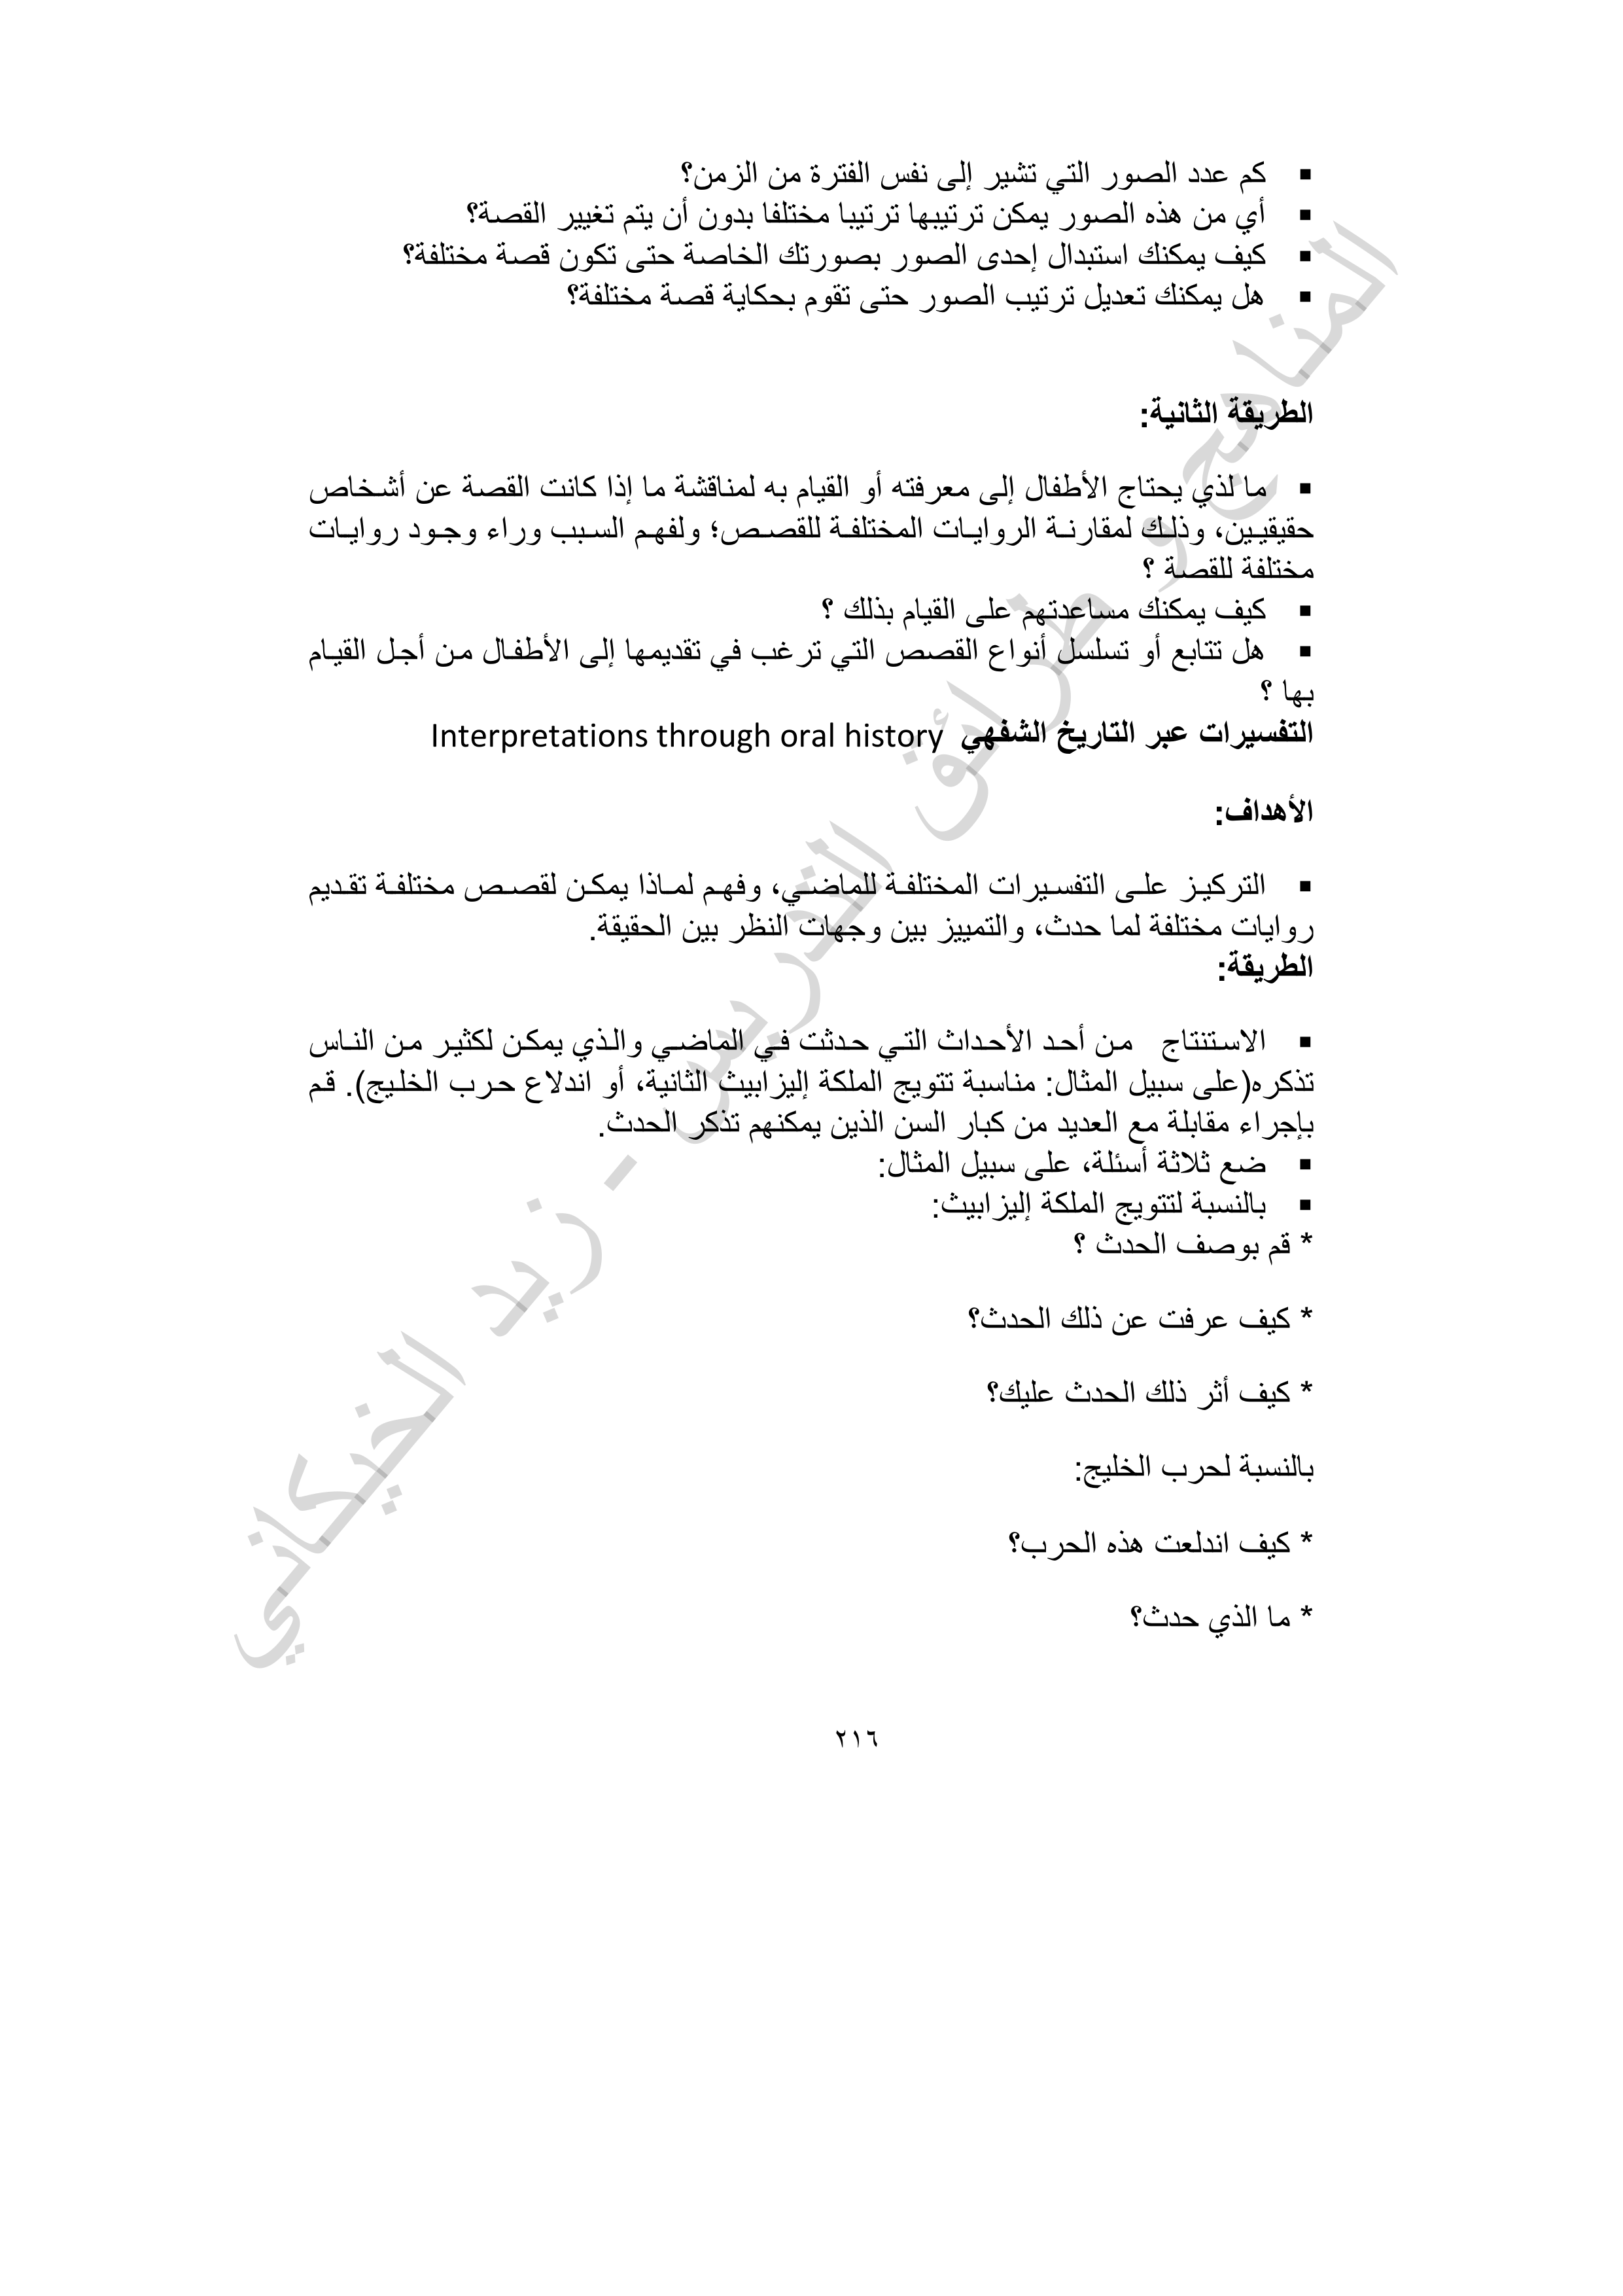 ▪ كم عدد الصور التي تشير إلى نفس الفترة من الزمن؟
▪ أي من هذه الصور يمكن ترتيبها ترتيبا مختلفا بدون أن يتم تغيير القصة؟
▪ كيف يمكنك استبدال إحدى الصور بصورتك الخاصة حتى تكون قصة مختلفة؟
▪ هل يمكنك تعديل ترتيب الصور حتى تقوم بحكاية قصة مختلفة؟
الطريقة الثانية:
▪ ما لذي يحتاج الأطفال إلى معرفته أو القيام به لمناقشة ما إذا كانت القصة عن أشخاص
حقيقيين، وذلك لمقارنة الروايات المختلفة للقصص؛ ولفهم السبب وراء وجود روايات
مختلفة للقصة ؟
▪ كيف يمكنك مساعدتهم على القيام بذلك ؟
▪ هل تتابع أو تسلسل أنواع القصص التي ترغب في تقديمها إلى الأطفال من أجل القيام
بها ؟
التفسيرات عبر التاريخ الشفهي Interpretations through oral history
الأهداف:
▪ التركيز على التفسيرات المختلفة للماضي، وفهم لماذا يمكن لقصص مختلفة تقديم
روايات مختلفة لما حدث، والتمييز بين وجهات النظر بين الحقيقة.
الطريقة:
▪ الاستنتاج من أحد الأحداث التي حدثت في الماضي والذي يمكن لكثير من الناس
تذكره(على سبيل المثال: مناسبة تتويج الملكة إليزابيث الثانية، أو اندلاع حرب الخليج). قم
بإجراء مقابلة مع العديد من كبار السن الذين يمكنهم تذكر الحدث.
▪ ضع ثلاثة أسئلة، على سبيل المثال:
▪ بالنسبة لتتويج الملكة إليزابيث:
* قم بوصف الحدث ؟
* كيف عرفت عن ذلك الحدث؟
* كيف أثر ذلك الحدث عليك؟
بالنسبة لحرب الخليج:
* كيف اندلعت هذه الحرب؟
* ما الذي حدث؟
٢١٦
المناهج و طرائق التدريس - زيد الخيكاني